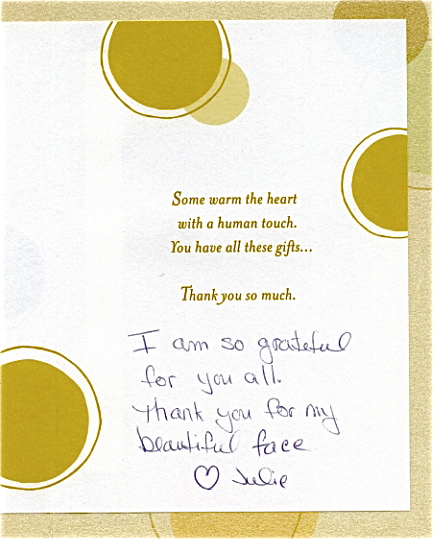 Some warm the heart
with a human touch.
You have all these gifts...
Thank you so much.
I am so grateful
for you all.
Thank you for my
beautiful face
♡ Julie